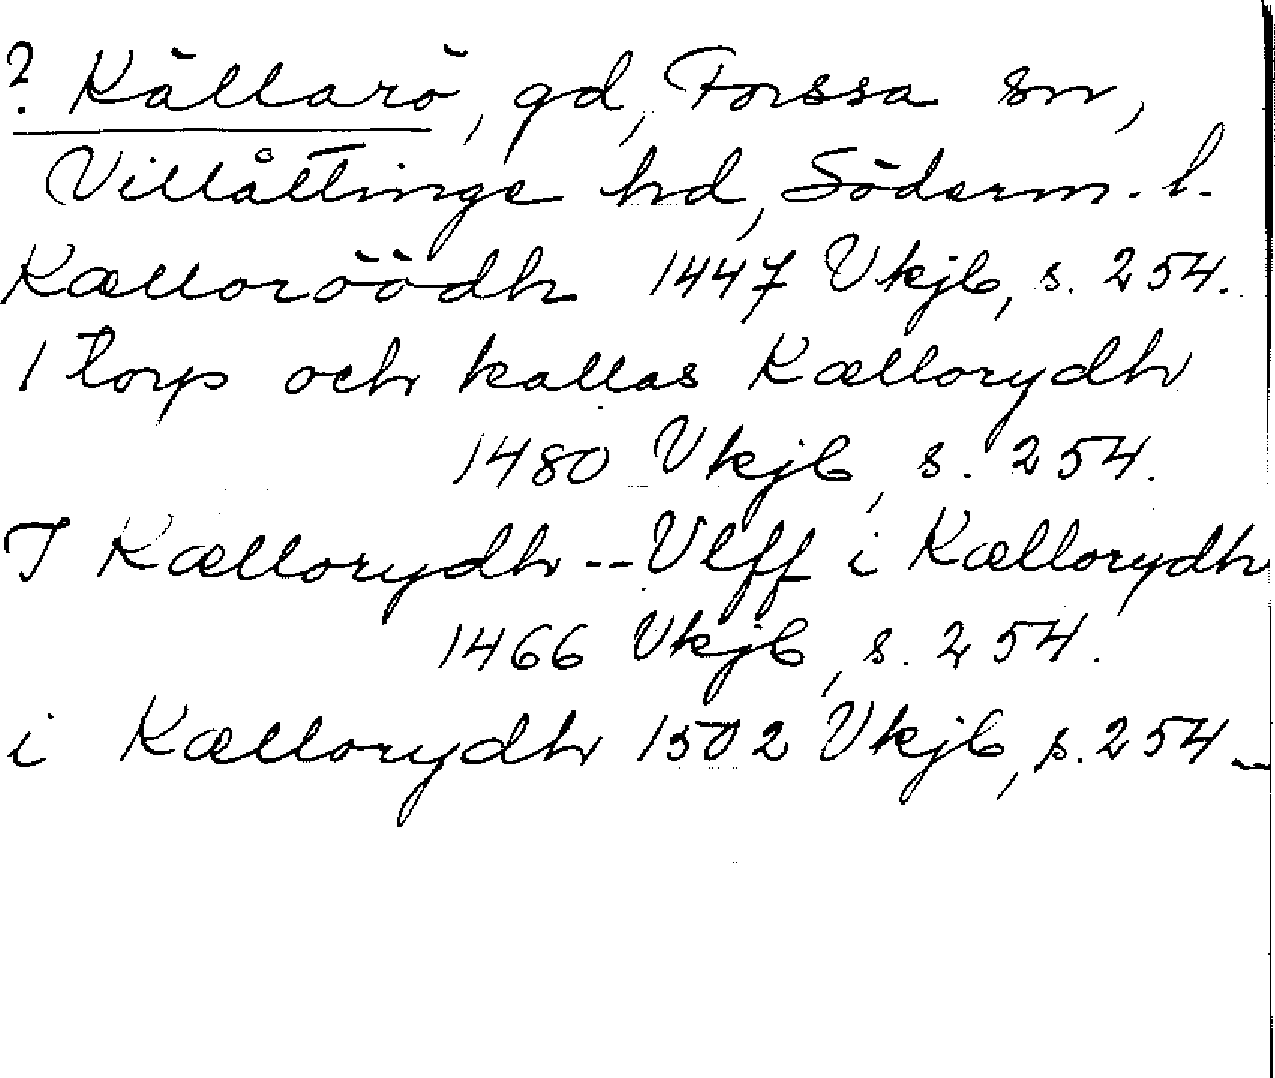 ? Källarö, gd, Forssa sn,
Villåttinge hd, Söderm. l.
Kælloröödh 1447 Vkjb, s. 254.
1 torp och kallas Kællorydh
1480 Vkjb, s. 254.
I Kællorydh -- Vlff i Kællorydh
1466 Vkjb, s. 254.
i Kællorydh 1502 Vkjb, s. 254.